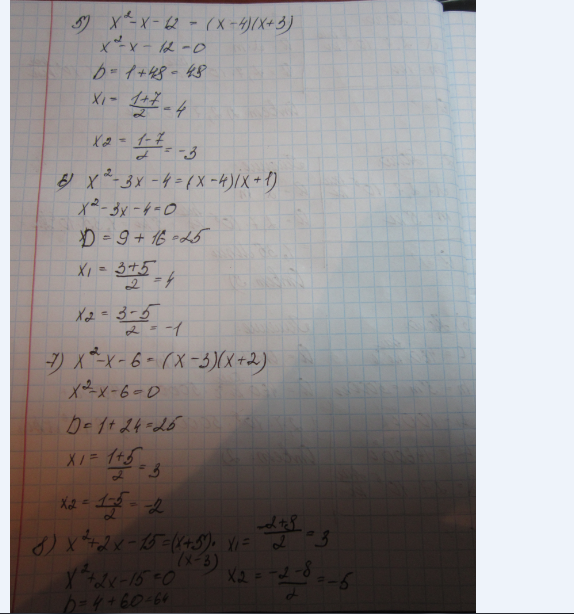 5) x²-x-12 = (x-4)(x+3)
x²-x-12=0
D=1+48=48
x1= (1+7)/2 = 4
x2 = (1-7)/2 = -3
6) x²-3x-4=(x-4)(x+1)
x²-3x-4=0
D = 9+16=25
x1 = (3+5)/2 = 4
x2 = (3-5)/2 = -1
7) x²-x-6=(x-3)(x+2)
x²-x-6=0
D=1+24=25
x1 = (1+5)/2 = 3
x2 = (1-5)/2 = -2
8) x²+2x-15=(x+5)·(x-3)
x²+2x-15=0
D=4+60=64
x1= (-2+8)/2 = 3
x2 = (-2-8)/2 = -5